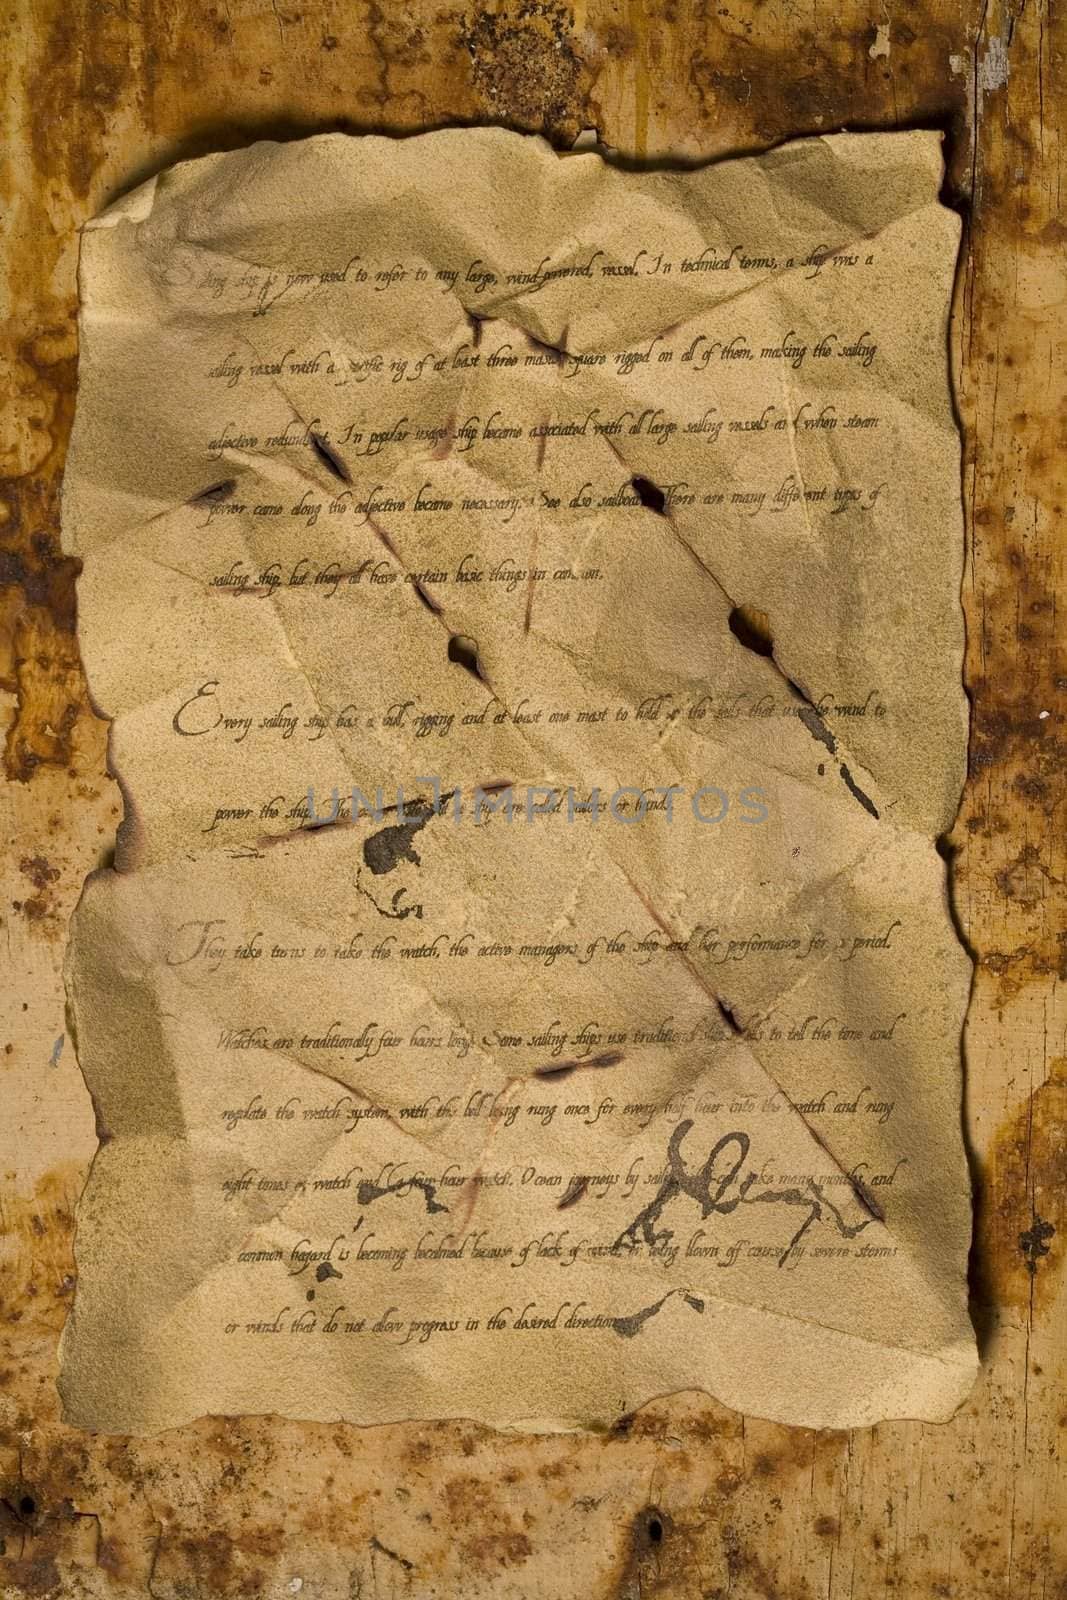 is now used to refer to any large, wind-powered, vessel. In technical terms, a ship was a
sailing vessel with a specific rig of at least three masts, square rigged on all of them, making the sailing
adjective redundant. In popular usage ship became associated with all large sailing vessels and when steam
power came along the adjective became necessary. See also sailboat. There are many different types of
sailing ship, but they all have certain basic things in common.
Every sailing ship has a hull, rigging and at least one mast to hold up the sails that use the wind to
power the ship. The they are called sailors or hands.
UNLIMPHOTOS
They take turns to take the watch, the active managers of the ship and her performance for a period.
Watches are traditionally four hours long. Some sailing ships use traditional ship's bells to tell the time and
regulate the watch system, with the bell being rung once for every half hour into the watch and rung
eight times at watch end (a four-hour watch). Ocean journeys by sailing ship can take many months, and
common hazard is becoming becalmed because of lack of wind, or being blown off course by severe storms
or winds that do not allow progress in the desired direction.